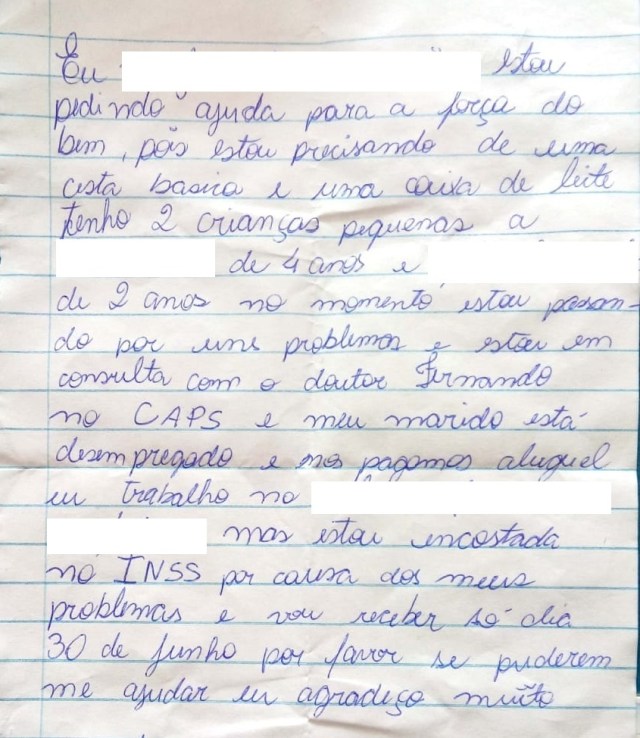 Eu estou
pedindo ajuda para a força do
bem, pois estou precisando de uma
cesta basica e uma caixa de leite
tenho 2 crianças pequenas a
de 4 anos e
de 2 anos no momento estou passan-
do por uns problemas e estou em
consulta com o doutor Fernando
no CAPS e meu marido está
desempregado e nos pagamos aluguel
eu trabalho no
mas estou encostada
no INSS por causa dos meus
problemas e vou receber só dia
30 de junho por favor se puderem
me ajudar eu agradeço muito